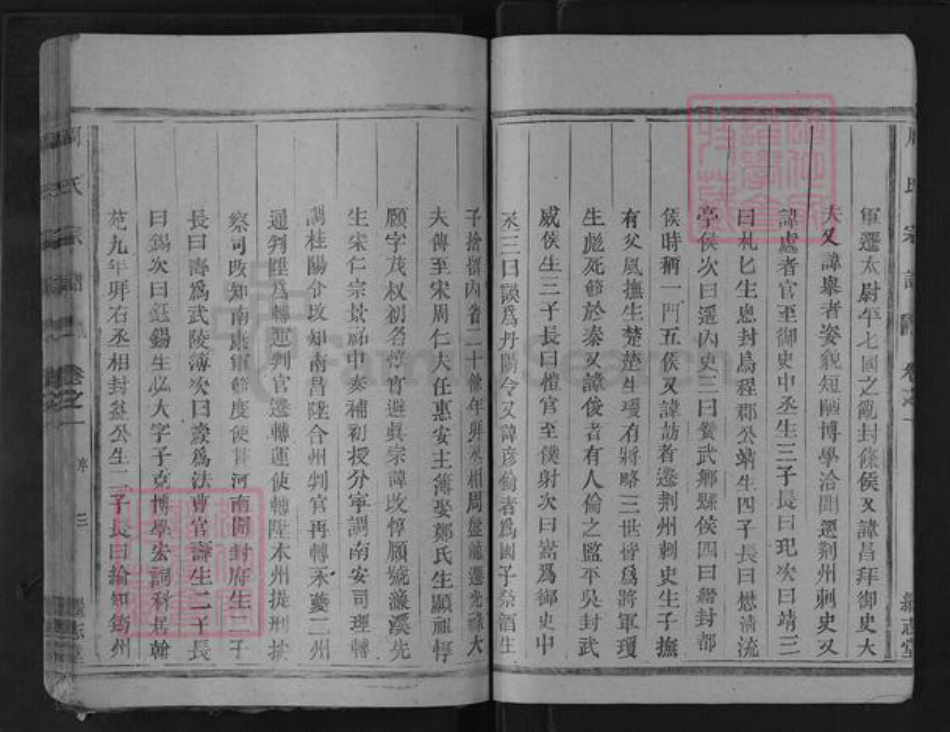 軍遷太尉平七國之亂封條侯又諱昌拜御史大
夫又諱舉者姿貌短陋博學洽聞遷荆州刺史又
諱處者官至御史中丞生三子長曰玘次曰靖三
曰札玘生勰封烏程郡公靖生四子長曰懋清流
亭侯次曰遥内史三曰賛武鄉縣侯四曰縉封都
侯時稱一門五侯又諱訪者遷荆州刺史生子撫
有父風撫生楚楚生瓊有將略三世皆爲將軍瓊
生彪死節於秦又諱俊者有人倫之監平吳封武
威侯生三子長曰愷官至僕射次曰嵩爲御史中
丞三曰謨爲丹陽令又諱彦倫者爲國子祭酒生
子捨畱内省二十餘年拜丞相周盤龍遷光祿大
夫傳至宋周仁夫任惠安主簿娶鄭氏生顯祖惇
頤字茂权初名惇實避眞宗諱改惇頤號濂溪先
生宋仁宗景祐中奏補初授分寧調南安司理轉
調桂陽令改知南昌陞合州判官再轉永夔二州
通判陞爲轉運判官遷轉運使轉陞本州提刑按
察司改知南康軍節度使 河南開封府生二子
長曰壽爲武陵簿次曰燾爲法曹官壽生二子長
曰錫次曰鈺錫生必大字子京博學宏詞科居翰
苑九年拜右丞相封益公生二子長曰綸知筠州
周氏宗譜 卷之一 三 繼志堂